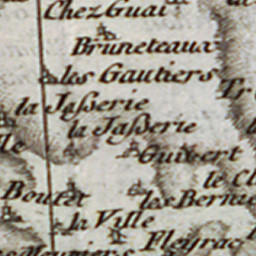 Chez Guai
Bruneteaux
les Gautiers
la Jaßerie
la Jaßerie
Guibert
le Cl
les Berna
la Ville
Fleyrac